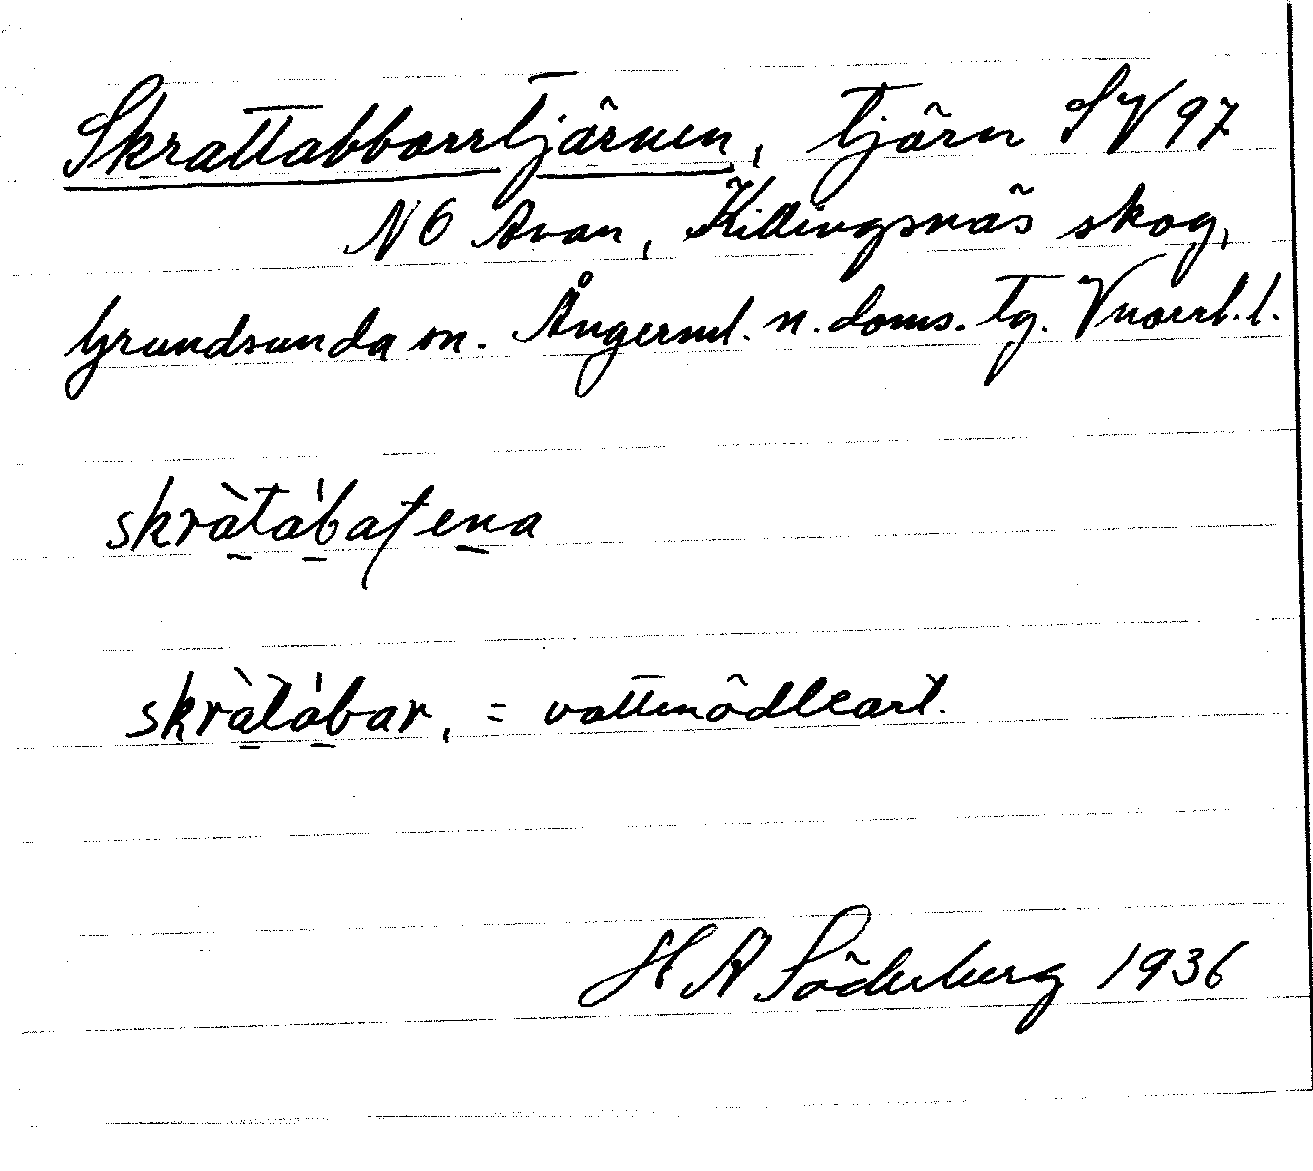 Skrattabborrtjärnen, tjärn SV 97
NO Avan, Killingsnäs skog,
Grundsunda sn. Ångerml. n. doms. tg. Vnorrl. l.
skràtábaʃena
skràtábar, = vattenödleart.
H A Söderberg 1936